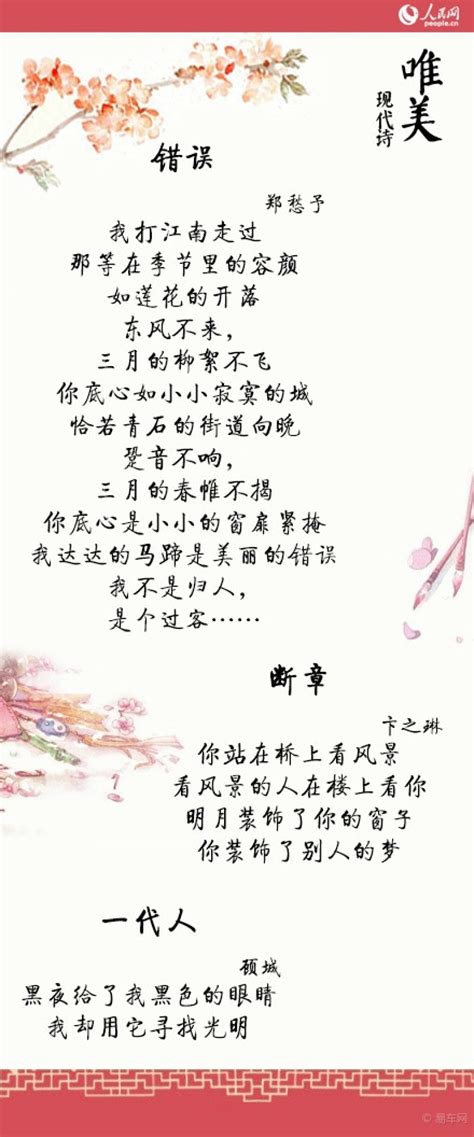 人民网
people.cn
唯美
现代诗
错误
郑愁予
我打江南走过
那等在季节里的容颜
如莲花的开落
东风不来，
三月的柳絮不飞
你底心如小小寂寞的城
恰若青石的街道向晚
跫音不响，
三月的春帷不揭
你底心是小小的窗扉紧掩
我达达的马蹄是美丽的错误
我不是归人，
是个过客……
断章
卞之琳
你站在桥上看风景
看风景的人在楼上看你
明月装饰了你的窗子
你装饰了别人的梦
一代人
顾城
黑夜给了我黑色的眼睛
我却用它寻找光明
©易车网